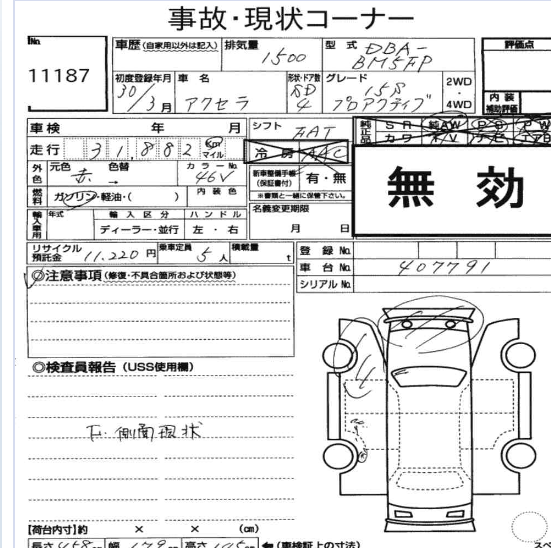 事故・現状コーナー
No.
11187
車歴 (自家用以外は記入)
排気量
1500
型式 DBA-
BM5FP
評価点
初度登録年月
30/3月
車名
アクセラ
形状・ドア数
SD
4
グレード
15S
プロアクティブ
2WD
・
4WD
内装
補助評価
車検 年 月
シフト
FAT
純正品
SR 純AW
カワ
走行 31,882 Km
マイル
冷房 AAC
無効
外色
元色 色替
赤 →
カラーNo.
46V
新車整備手帳
(保証書付)
有・無
※書類と一緒に保管下さい。
燃料
ガソリン・軽油・( )
内装色
名義変更期限
月 日
輸入車用
年式
輸入区分
ハンドル
ディーラー・並行
左・右
リサイクル
預託金
11.220円
乗車定員
5人
積載量
t
登録No.
車台No. 407791
シリアルNo.
◎注意事項 (修復・不具合箇所および状態等)
◎検査員報告 (USS使用欄)
下・側面現状
【荷台内寸】約 × × (cm)
長さ 458
幅 179
高さ
←(車検証上の寸法)